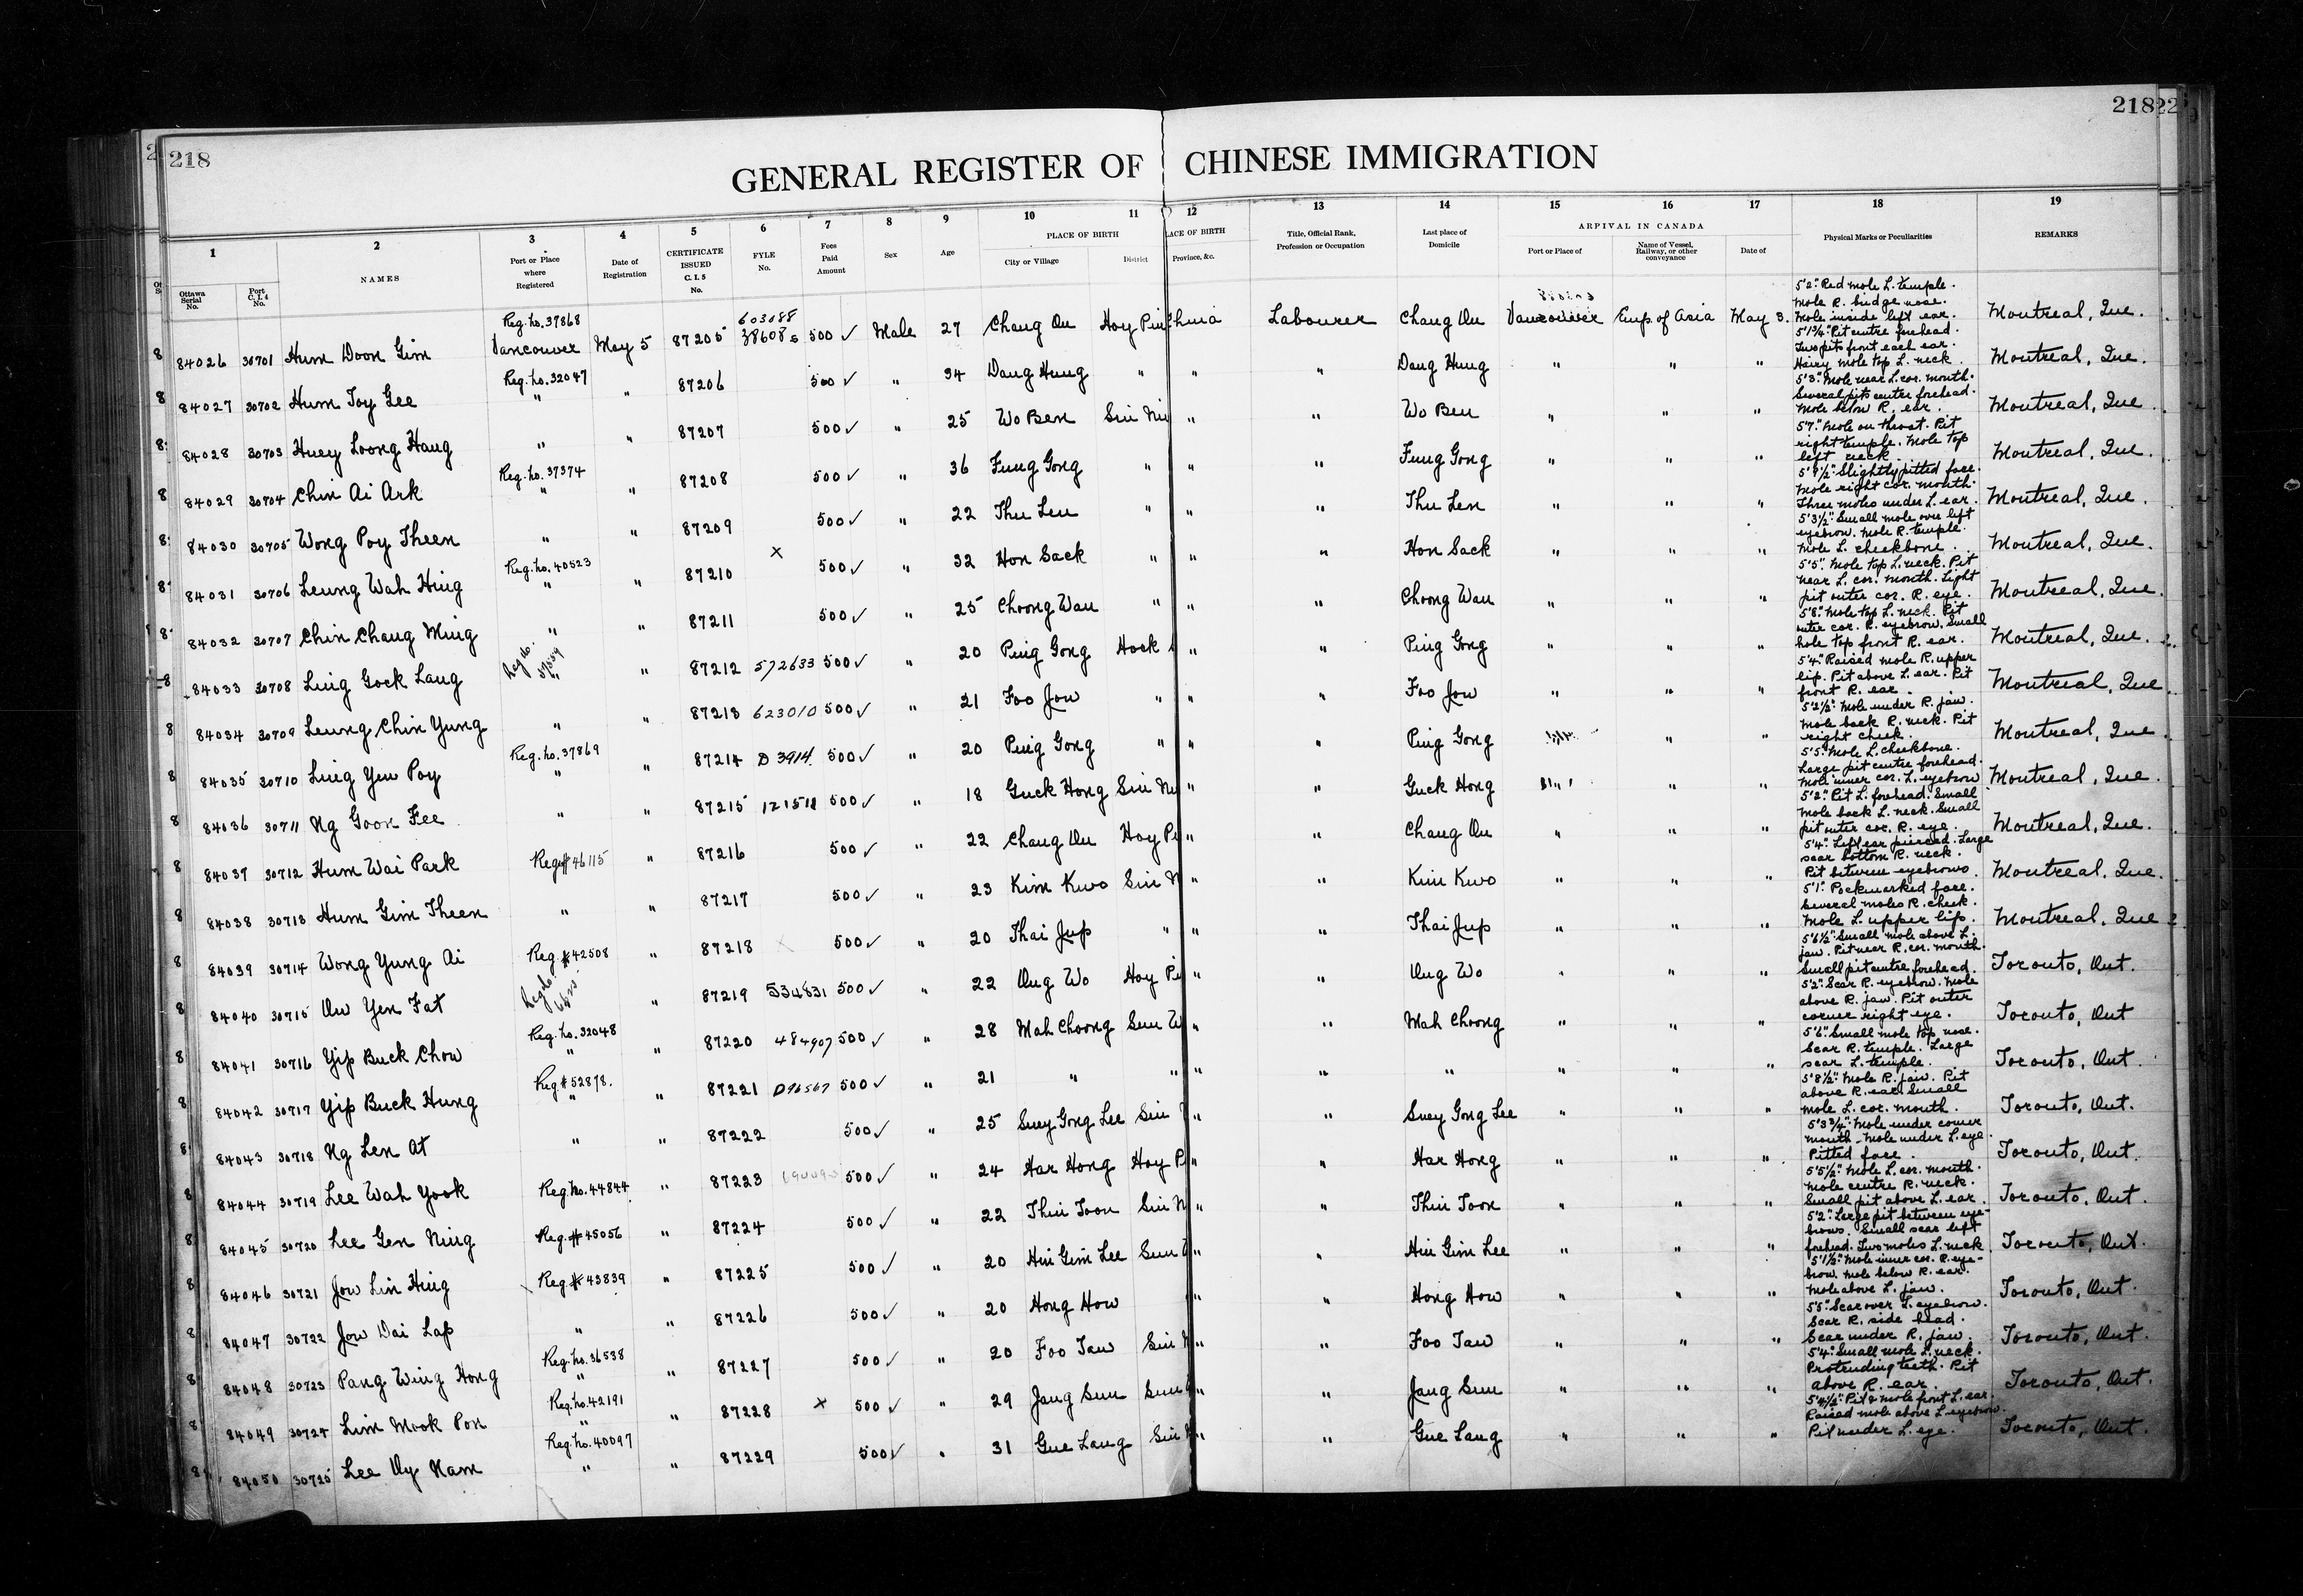 218
218
22
GENERAL REGISTER OF CHINESE IMMIGRATION
1 2 3 4 5 6 7 8 9 10 11 12 13 14 15 16 17 18 19
Ottawa Serial No. Port C.I.4 No. NAMES Port or Place where Registered Date of Registration CERTIFICATE ISSUED C.I.5 No. FYLE No. Fees Paid Amount Sex Age PLACE OF BIRTH City or Village District PLACE OF BIRTH Province, &c. Title, Official Rank, Profession or Occupation Last place of Domicile ARRIVAL IN CANADA Port or Place of Name of Vessel, Railway, or other conveyance Date of Physical Marks or Peculiarities REMARKS
84026 30701 Hum Doon Gim Reg. No. 37868 Vancouver May 5 87205 603088 500 ✓ Male 27 Chang On Hoy Pin China Labourer Chang On Vancouver Emp. of Asia May 3. 5'2". Red mole L. temple. Mole R. bridge nose. Mole inside left ear. Montreal, Que.
84027 30702 Hum Toy Gee Reg. No. 32047 " " 87206 500 ✓ " 34 Dang Hung " " " Dang Hung " " " 5'1¾". Pit centre forehead. Two pits front each ear. Hairy mole top L. neck. Montreal, Que.
84028 30703 Huey Loong Hang " " 87207 500 ✓ " 25 Wo Ben Sin Nin " " Wo Ben " " " 5'3". Mole near L. cor. mouth. Several pits center forehead. Mole below R. ear. Montreal, Que.
84029 30704 Chin Ai Ark Reg. No. 37374 " " 87208 500 ✓ " 36 Fung Gong " " " Fung Gong " " " 5'7". Mole on throat. Pit right temple. Mole top left neck. Montreal, Que.
84030 30705 Wong Poy Theen " " 87209 500 ✓ " 22 Thu Len " " " Thu Len " " " Slightly pitted face. Mole right cor. mouth. Three moles under L. ear. Montreal, Que.
84031 30706 Leung Wah Hing Reg. No. 40523 " " 87210 X 500 ✓ " 32 Hon Sack " " " Hon Sack " " " 5'3½". Small mole over left eyebrow. Mole R. temple. Mole L. cheekbone. Montreal, Que.
84032 30707 Chin Chang Ming " " 87211 500 ✓ " 25 Choong Wan " " " Choong Wan " " " 5'5". Mole top L. neck. Pit near L. cor. mouth. Light pit outer cor. R. eye. Montreal, Que.
84033 30708 Ling Gock Lang Reg No. " " 87212 572633 500 ✓ " 20 Ping Gong Hock " " Ping Gong " " " 5'8". Mole top L. neck. Pit outer cor. R. eyebrow. Small hole top front R. ear. Montreal, Que.
84034 30709 Leung Chin Yung " " 87213 623010 500 ✓ " 21 Foo Jow " " " Foo Jow " " " 5'4". Raised mole R. upper lip. Pit above L. ear. Pit front R. ear. Montreal, Que.
84035 30710 Ling Yew Poy Reg. No. 37869 " " 87214 D 3914 500 ✓ " 20 Ping Gong " " " Ping Gong " " 5'2½". Mole under R. jaw. Mole back R. neck. Pit right cheek. Montreal, Que.
84036 30711 Ng Goon Fee " " 87215 500 ✓ " 18 Guck Hong Sin Nin " " Guck Hong " " 5'5". Mole L. cheekbone. Large pit centre forehead. Mole inner cor. L. eyebrow Montreal, Que.
84037 30712 Hum Wai Park Reg # 46115 " 87216 500 ✓ " 22 Chang On Hoy Pin " " Chang On " " " 5'2". Pit L. forehead. Small mole back L. neck. Small pit outer cor. R. eye. Montreal, Que.
84038 30713 Hum Gim Theen " " 87217 500 ✓ " 23 Kim Kwo Sin N " " Kim Kwo " " " 5'4". Left ear pierced. Large scar bottom R. neck. Pit between eyebrows. Montreal, Que.
84039 30714 Wong Yung Ai Reg. #42508 " 87218 500 ✓ " 20 Thai Jup " " " Thai Jup " " " 5'1". Pockmarked face. Several moles R. cheek. Mole L. upper lip. Montreal, Que
84040 30715 Ow Yen Fat Reg No. " 87219 534831 500 ✓ " 22 Ong Wo Hoy Pin " " Ong Wo " " " 5'6½". Small mole above L. jaw. Pit near R. cor. mouth. Small pit centre forehead. Toronto, Ont.
84041 30716 Yip Buck Chow Reg. No. 32048 " " 87220 484907 500 ✓ " 28 Mah Choong Sun W " " Mah Choong " " " 5'2". Scar R. eyebrow. Mole above R. jaw. Pit outer corner right eye. Toronto, Ont
84042 30717 Yip Buck Hung Reg # 52878. " " 87221 D96567 500 ✓ " 21 " " " " " " " " 5'6". Small mole top nose. Scar R. temple. Large scar L. temple. Toronto, Ont.
84043 30718 Ng Len At " " 87222 500 ✓ " 25 Suey Gong Lee Sin " " Suey Gong Lee " " " 5'8½". Mole R. jaw. Pit above R. ear. Small mole L. cor. mouth. Toronto, Ont.
84044 30719 Lee Wah Yook Reg. No. 44844 " 87223 500 ✓ " 24 Har Hong Hoy P " " Har Hong " " " 5'3¾". Mole under corner mouth. Mole under L. eye. Pitted face. Toronto, Ont.
84045 30720 Lee Gen Ning Reg. # 45056 " 87224 500 ✓ " 22 Thin Toon Sin N " " Thin Toon " " " 5'5½". Mole L. cor. mouth. Mole centre R. neck. Small pit above L. ear. Toronto, Ont.
84046 30721 Jow Lin Hing Reg. # 43839 " 87225 500 ✓ " 20 Hin Gim Lee Sun " " Hin Gim Lee " " " 5'2". Large pit between eyebrows. Small scar left forehead. Two moles L. neck. Toronto, Ont.
84047 30722 Jow Dai Lap " " 87226 500 ✓ " 20 Hong How " " Hong How " " " 5'1½". Mole inner cor. R. eyebrow. Mole below R. ear. Mole above L. jaw. Toronto, Ont.
84048 30723 Pang Wing Hong Reg. No. 36538 " " 87227 500 ✓ " 20 Foo Taw Sin N " " Foo Taw " " " 5'5". Scar over L. eyebrow. Scar R. side head. Scar under R. jaw. Toronto, Ont.
84049 30724 Lim Mook Pon Reg. No. 42191 " " 87228 X 500 ✓ " 29 Jang Sun Sun " " Jang Sun " " " 5'4". Small mole L. neck. Protruding teeth. Pit above R. ear. Toronto, Ont.
84050 30725 Lee Oy Nam Reg. No. 40097 " " 87229 500 ✓ " 31 Gue Lang Sin N " " Gue Lang " " " 5'4½". Pit & mole front L. ear. Raised mole above L. eyebrow. Pit under L. eye. Toronto, Ont.